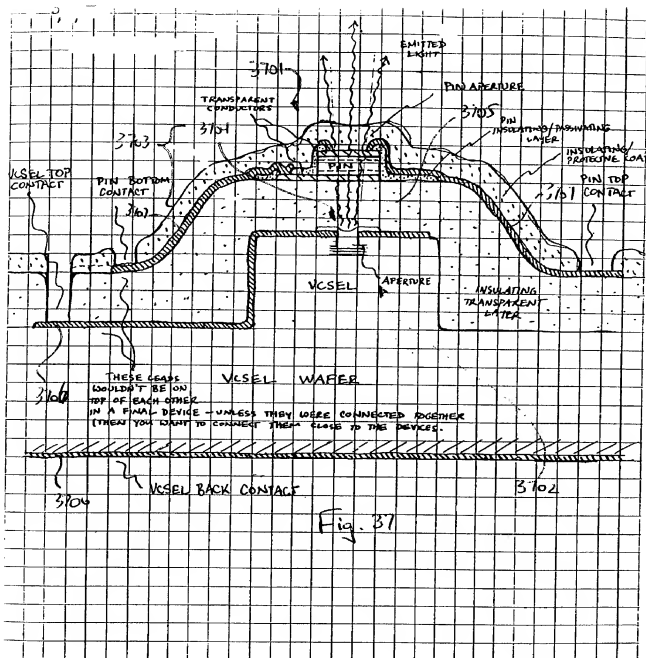 EMITTED
LIGHT
3701
PIN APERTURE
TRANSPARENT
CONDUCTORS
3705
3703
PIN
INSULATING/PASSIVATING
LAYER
INSULATING/
PROTECTIVE COAT
VCSEL TOP
CONTACT
PIN BOTTOM
CONTACT
PIN
PIN TOP
CONTACT
3707
VCSEL
APERTURE
INSULATING
TRANSPARENT
LAYER
THESE LEADS
WOULDN'T BE ON
TOP OF EACH OTHER
IN A FINAL DEVICE - UNLESS THEY WERE CONNECTED TOGETHER
(THEN YOU WANT TO CONNECT THEM CLOSE TO THE DEVICES.
VCSEL WAFER
3706
VCSEL BACK CONTACT
3702
Fig. 37